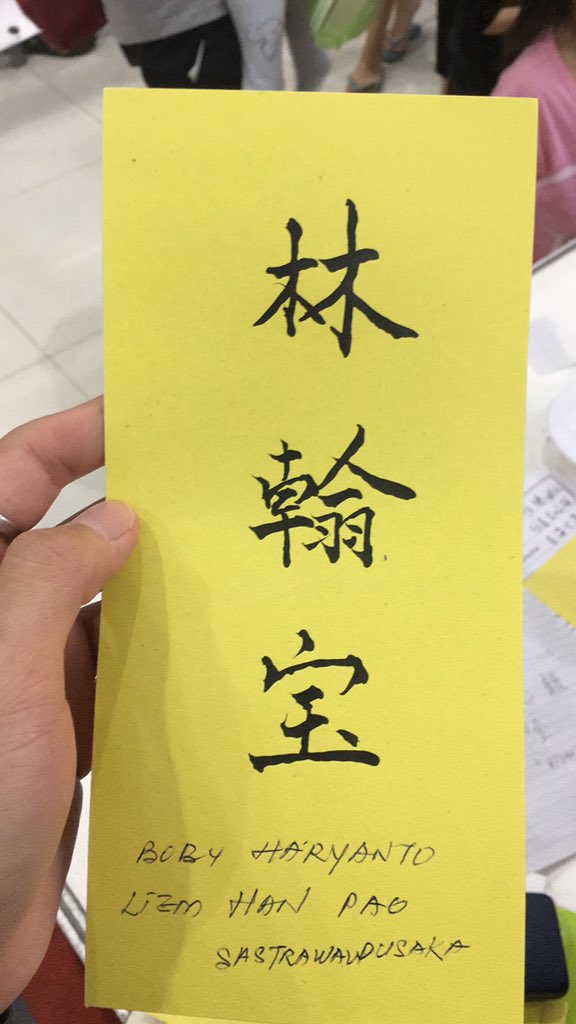 林
翰
宝
BOBY HARYANTO
LIEM HAN PAO
SASTRAWANDUSAKA